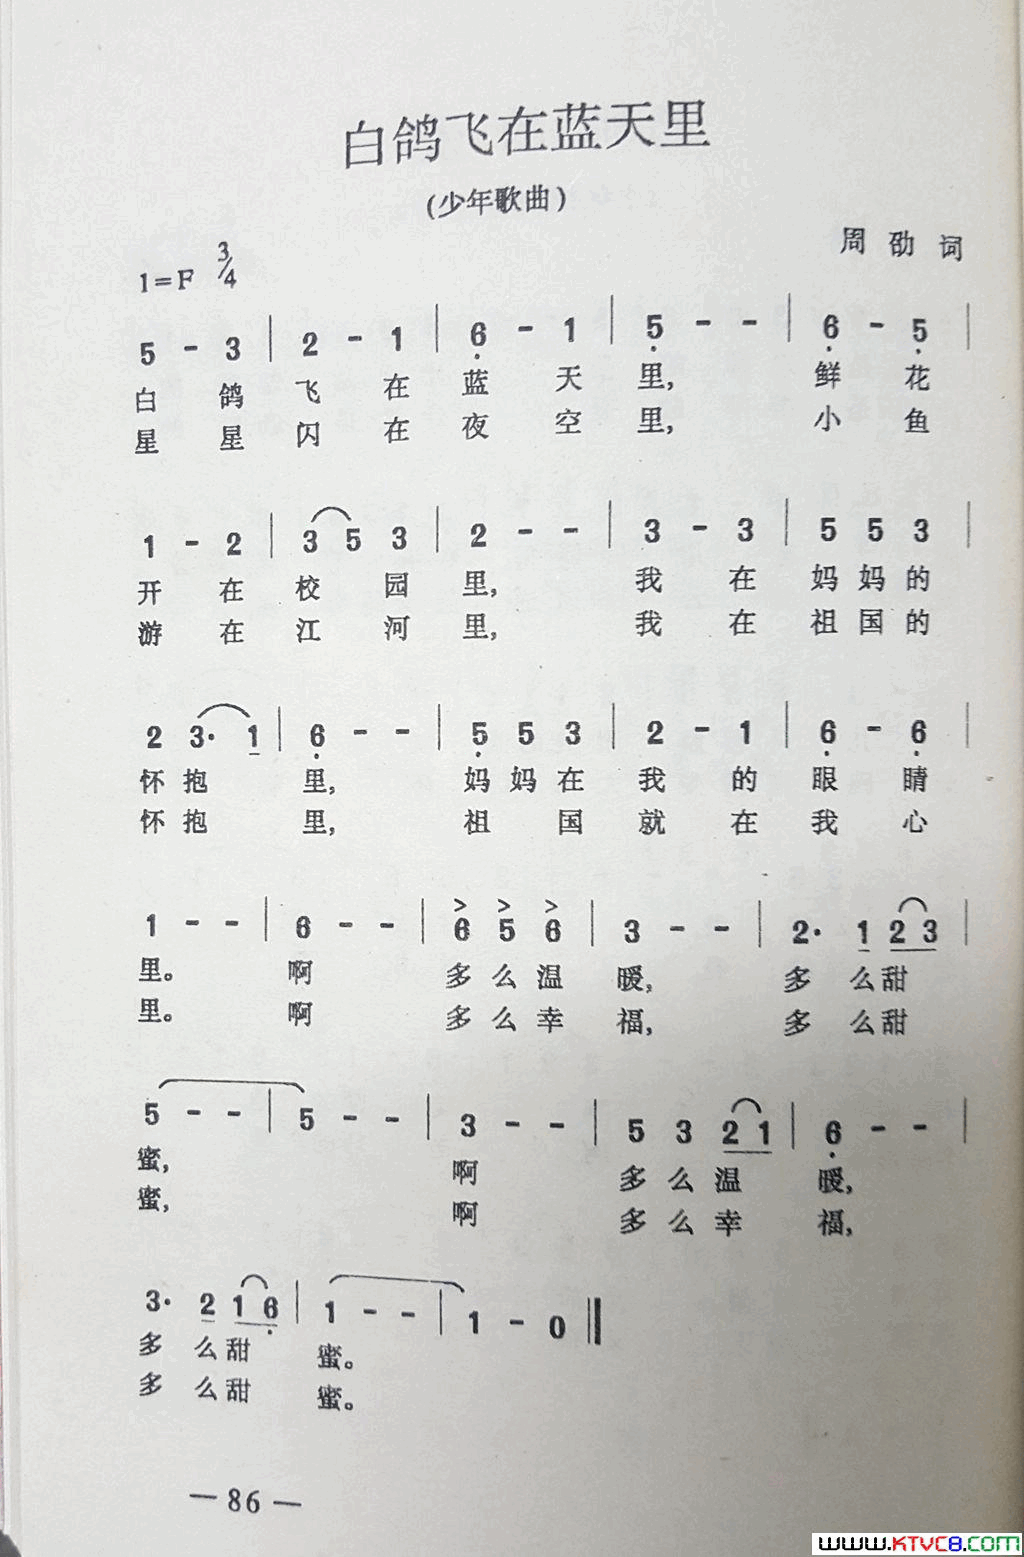 白鸽飞在蓝天里
(少年歌曲)
周劭词
1=F 3/4
5 - 3 | 2 - 1 | 6̣ - 1 | 5̣ - - | 6̣ - 5̣ |
白 鸽 飞 在 蓝 天 里, 鲜 花
星 星 闪 在 夜 空 里, 小 鱼
1 - 2 | 3 5 3 | 2 - - | 3 - 3 | 5 5 3 |
开 在 校 园 里, 我 在 妈 妈 的
游 在 江 河 里, 我 在 祖 国 的
2 3· 1 | 6̣ - - | 5̣ 5 3 | 2 - 1 | 6̣ - 6̣ |
怀 抱 里, 妈 妈 在 我 的 眼 睛
怀 抱 里, 祖 国 就 在 我 心
1 - - | 6 - - | 6 5 6 | 3 - - | 2· 1 2 3 |
里。 啊 多 么 温 暖, 多 么 甜
里。 啊 多 么 幸 福, 多 么 甜
5 - - | 5 - - | 3 - - | 5 3 2 1 | 6̣ - - |
蜜, 啊 多 么 温 暖,
蜜, 啊 多 么 幸 福,
3· 2 1 6̣ | 1 - - | 1 - 0 ‖
多 么 甜 蜜。
多 么 甜 蜜。
— 86 —
www.KTVC8.com